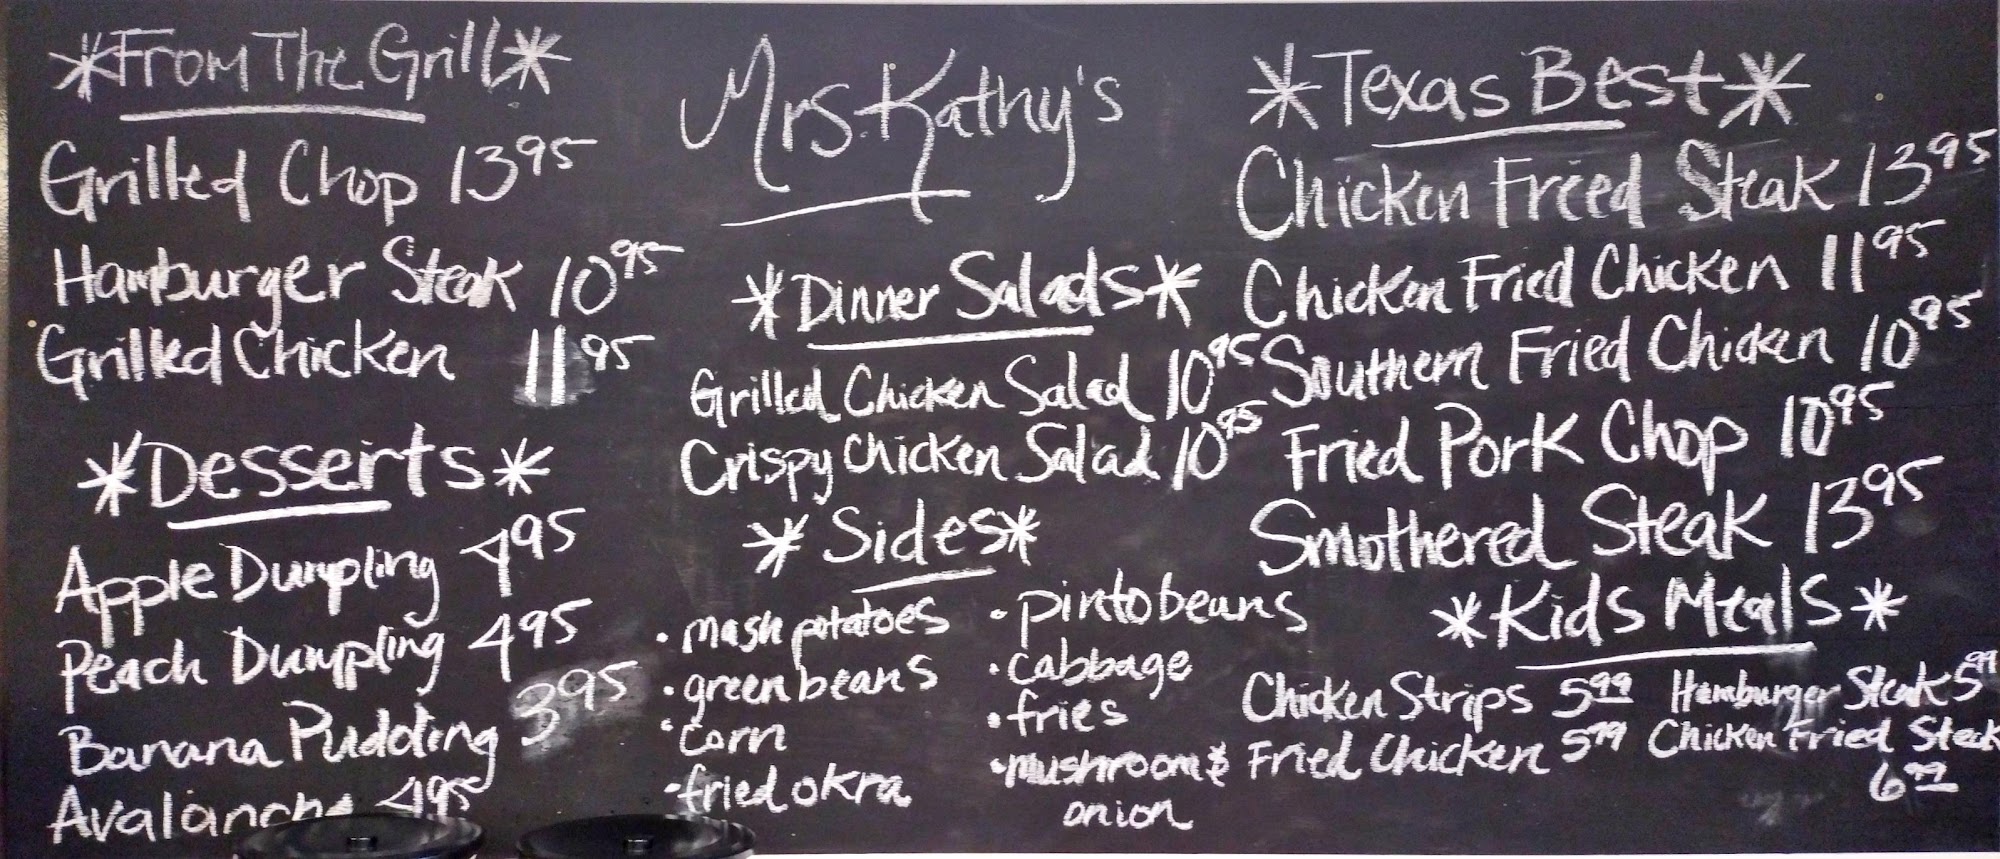 *From The Grill*
Grilled Chop 13 95
Hamburger Steak 10 95
Grilled Chicken 11 95
*Desserts*
Apple Dumpling 4 95
Peach Dumpling 4 95
Banana Pudding 3 95
Avalanche 4 95
Mrs. Kathy's
*Dinner Salads*
Grilled Chicken Salad 10 95
Crispy Chicken Salad 10 95
*Sides*
• mash potatoes
• green beans
• corn
• fried okra
• pinto beans
• cabbage
• fries
• mushroom &
onion
*Texas Best*
Chicken Freed Steak 13 95
Chicken Fried Chicken 11 95
Southern Fried Chicken 10 95
Fried Pork Chop 10 95
Smothered Steak 13 95
*Kids Meals*
Chicken Strips 5 99 Hamburger Steak 5 99
Fried Chicken 5 99 Chicken Fried Steak
6 99